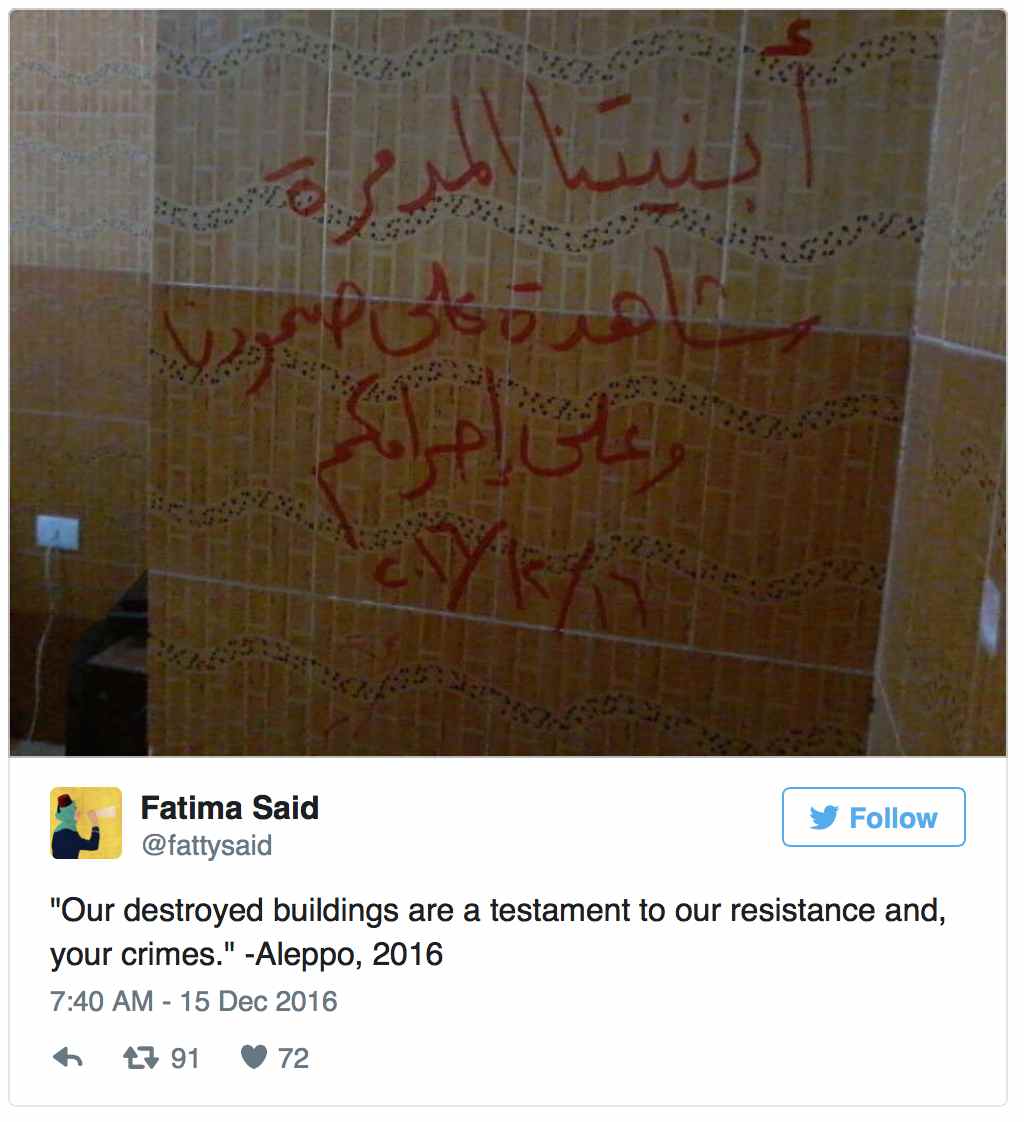 أبنيتنا المدمرة
شاهدة على صمودنا
وعلى إجرامكم
٢٠١٦/١٢/
Fatima Said
@fattysaid
Follow
"Our destroyed buildings are a testament to our resistance and,
your crimes." -Aleppo, 2016
7:40 AM - 15 Dec 2016
91 72